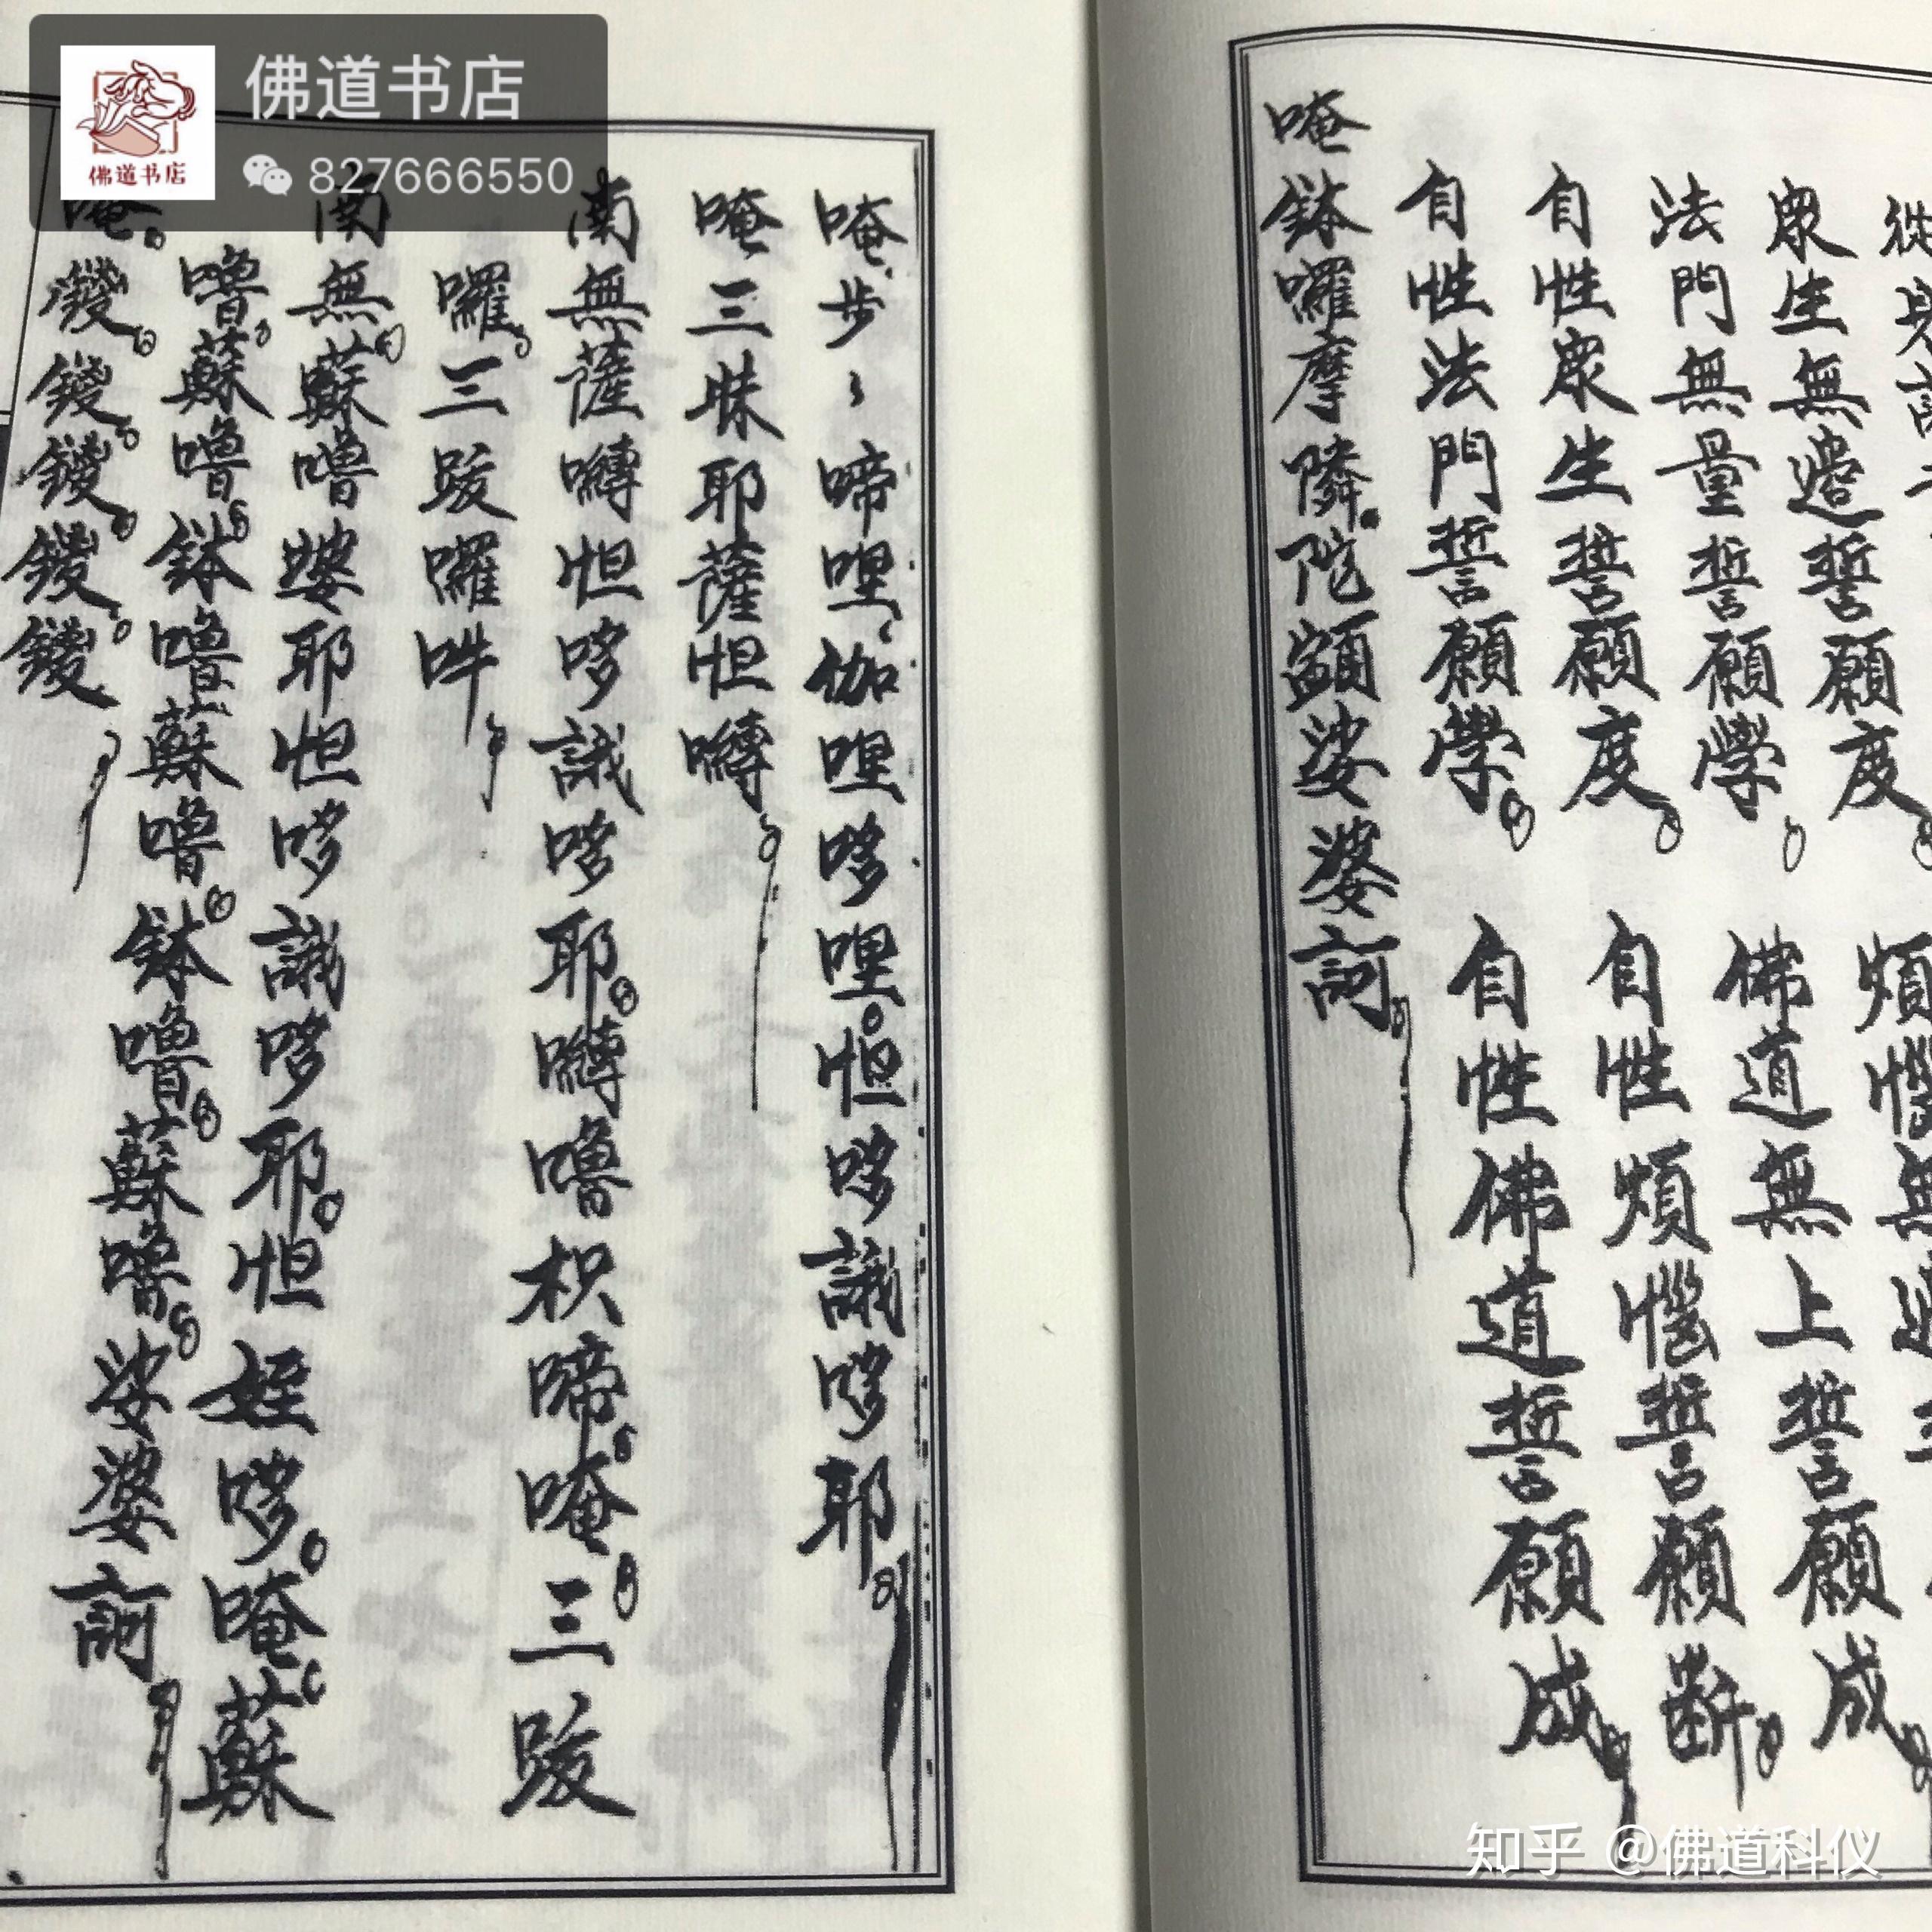 眾生無邊誓願度 煩惱無邊
法門無量誓願學 佛道無上誓願成
自性眾生誓願度 自性煩惱誓願斷
自性法門誓願學 自性佛道誓願成
唵鉢囉摩隣陀娑婆訶
唵步〻啼哩伽哩哆哩怛哆誐哆耶
唵三昧耶薩怛嚩
南無薩嚩怛哆誐哆耶嚩嚕枳啼唵三跋
囉三跋囉吽
南無蘇嚕婆耶怛哆誐哆耶怛姪哆唵蘇
嚕蘇嚕鉢嚕蘇嚕鉢嚕蘇嚕娑婆訶
唵鑁鑁鑁鑁鑁
佛道书店
827666550
佛道书店
知乎 @佛道科仪